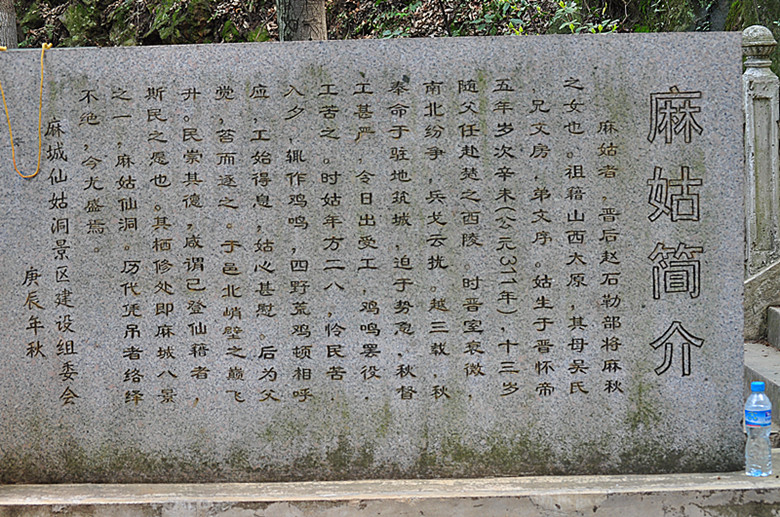 麻姑简介
麻姑者，晋后赵石勒部将麻秋
之女也。祖籍山西太原，其母吴氏
，兄文房，弟文序。姑生于晋怀帝
五年岁次辛未（公元311年），十三岁
随父任赴楚之西陵。时晋室衰微，
南北纷争，兵戈云扰。越三载，秋
奉命于驻地筑城，迫于势急，秋督
工甚严，令日出受工，鸡鸣罢役，
工苦之。时姑年方二八，怜民苦，
入夕，辄作鸡鸣，四野荒鸡顿相呼
应，工始得息，姑心甚慰。后为父
觉，笞而逐之。于邑北峭壁之巅飞
升。民崇其德，咸谓已登仙籍者，
斯民之愿也。其栖修处即麻城八景
之一，麻姑仙洞。历代凭吊者络绎
不绝，今尤盛焉。
麻城仙姑洞景区建设组委会
庚辰年秋